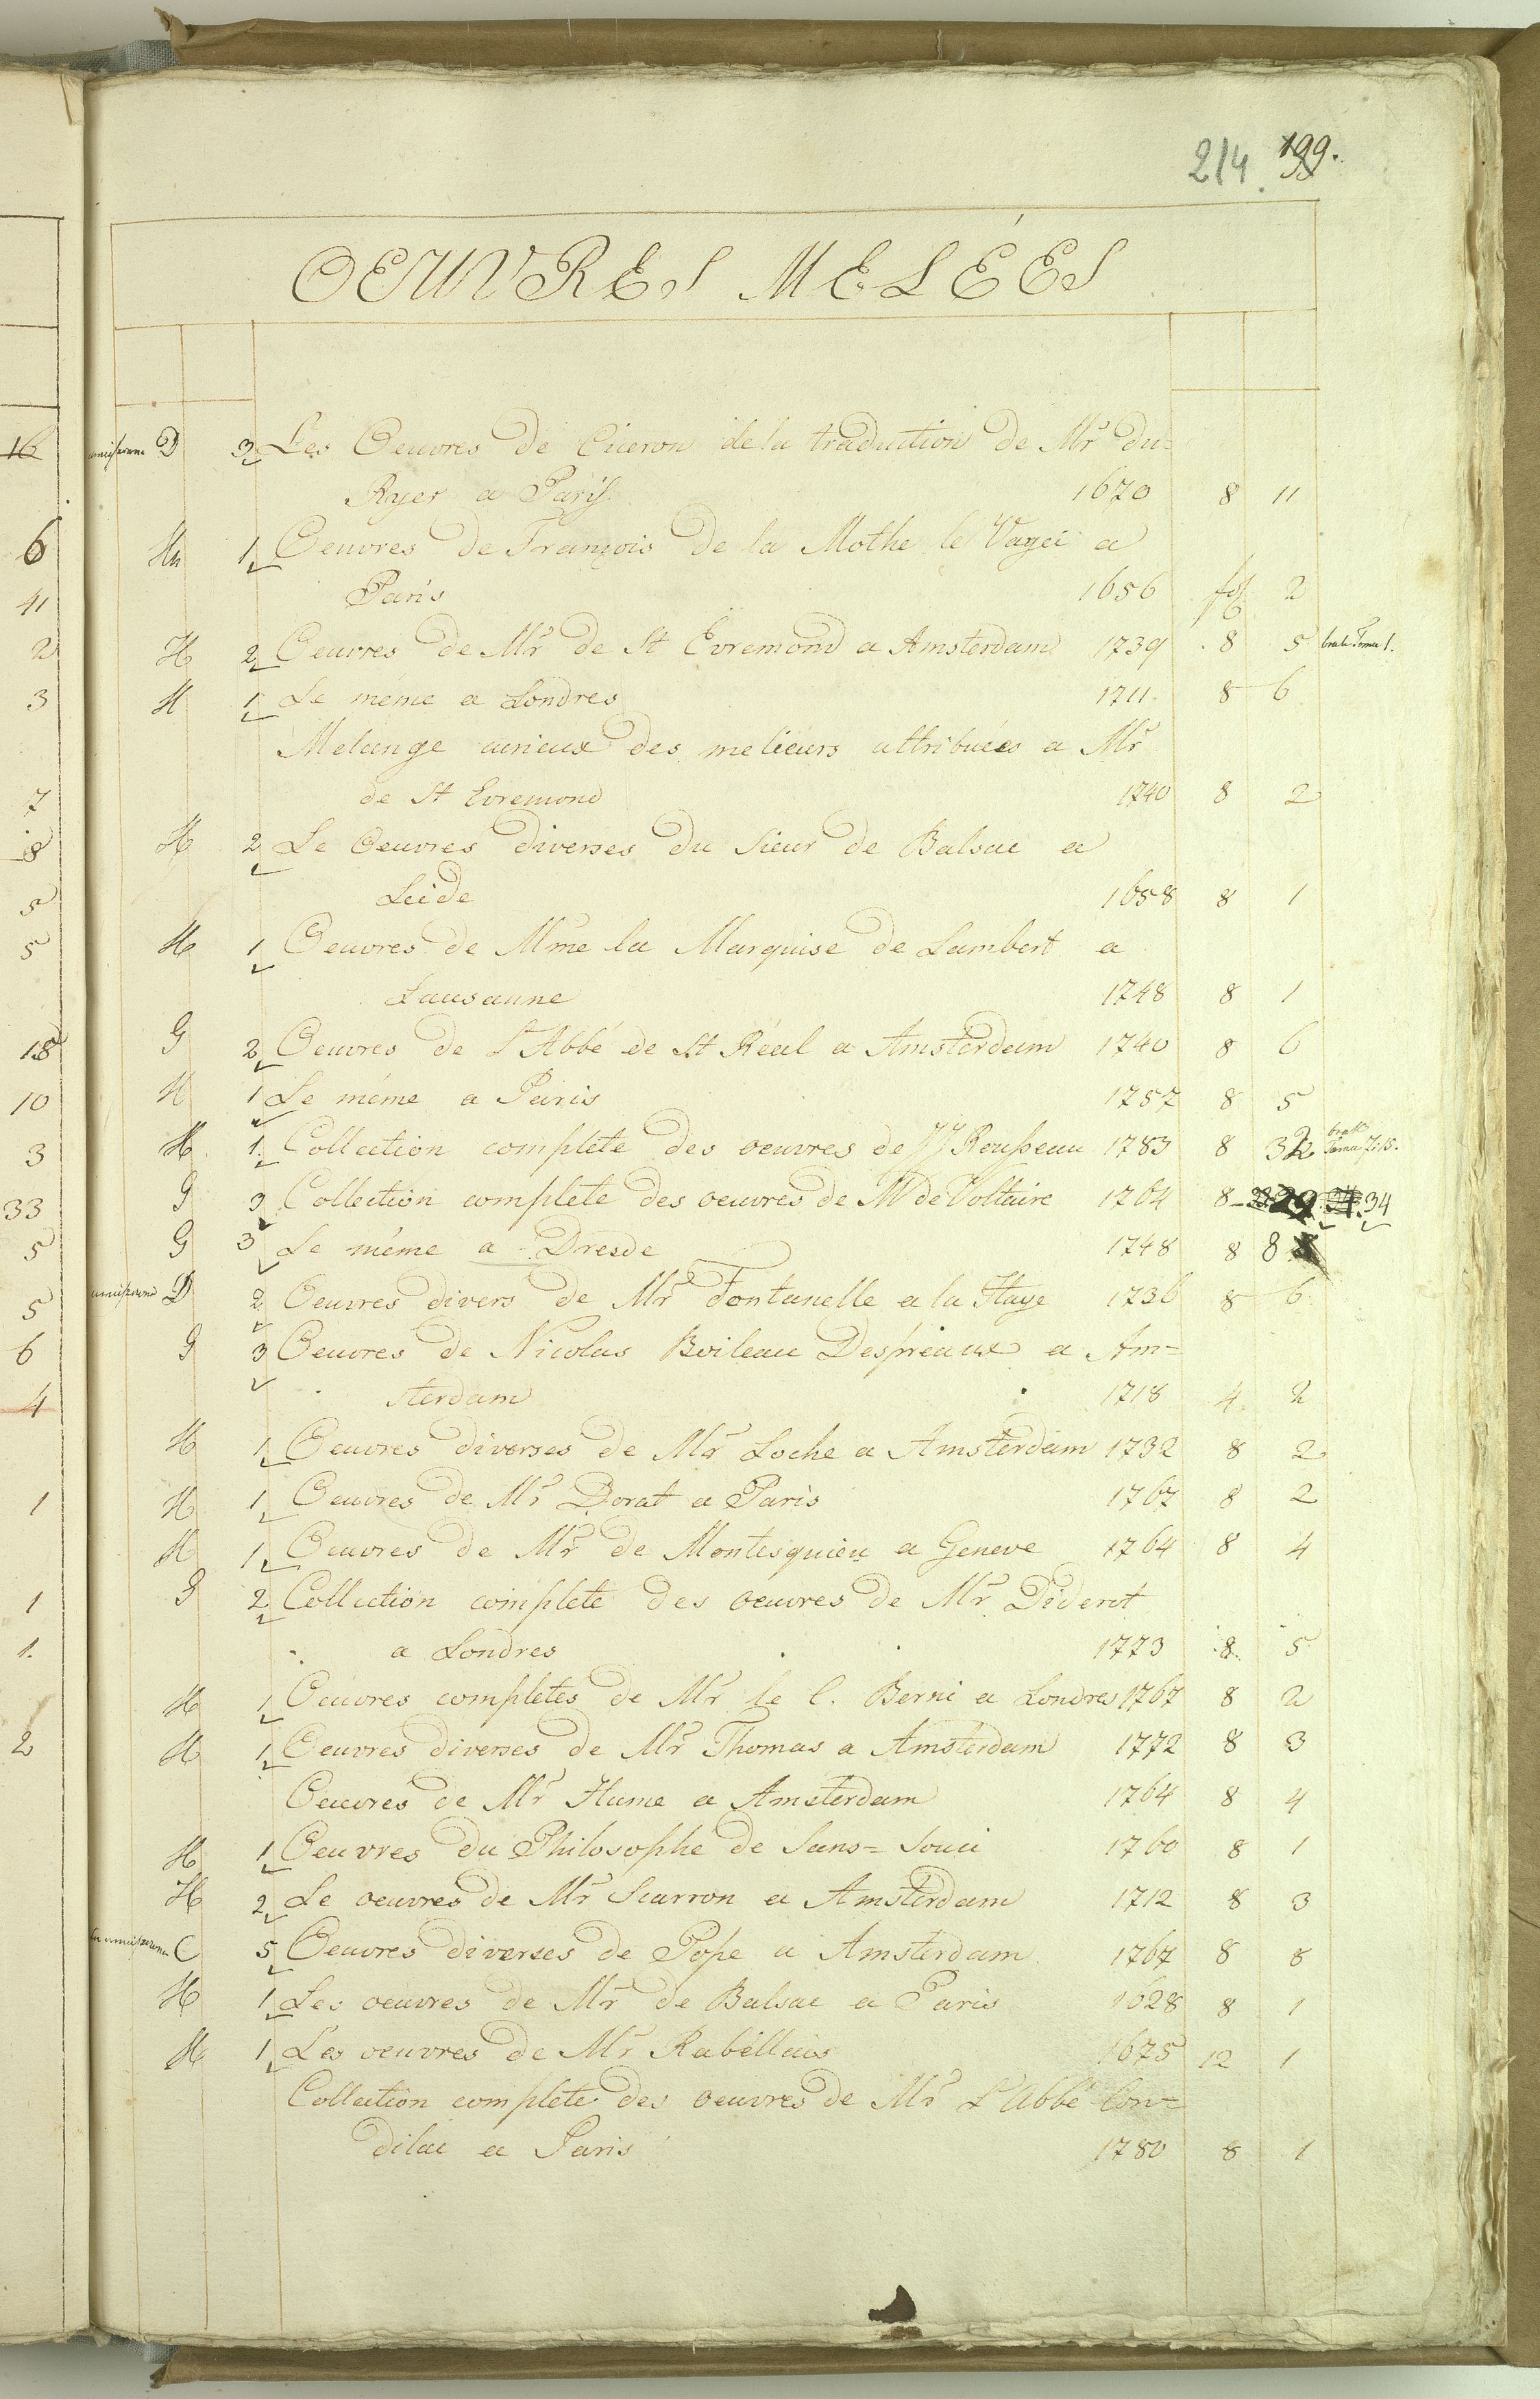 214. 199.
OEUVRES MELÉES
D 3 Les Oeuvres de Ciceron de la traduction de Mr du=
Ryer a Paris 1670 8 11
Hn 1 Oeuvres de François de la Mothe le Vayei a
Paris 1656 fol 2
H 2 Oeuvres de Mr de St Evremond a Amsterdam 1739 8 5 brak Tomu 1.
H 1 Le méme a Londres 1711. 8 6
Melange curieux des melieurs attribuées a Mr
de St Evremond 1740 8 2
H 2 Le Oeuvres diverses du Sieur de Balsac a
Leide 1658 8 1
H 1 Oeuvres de Mme la Marquise de Lambert a
Lausanne 1748 8 1
G 2 Oeuvres de L'Abbé de St Réal a Amsterdam 1740 8 6
H 1 Le méme a Paris 1757 8 5
H 1. Collection complete des oeuvres de JJ Rousseau 1783 8 32 brak Tomu 7. i 15.
G 3 Collection complete des oeuvres de Mr de Voltaire 1764 8 29 34
G 3 Le méme a Dresde 1748 8 8
D 2 Oeuvres divers de Mr Fontanelle a la Haye 1736 8 6
G 3 Oeuvres de Nicolas Boileau Despréaux a Am=
sterdam 1718 4 2
H 1 Oeuvres diverses de Mr Loche a Amsterdam 1732 8 2
H 1 Oeuvres de Mr Dorat a Paris 1767 8 2
H 1 Oeuvres de Mr de Montesquieu a Geneve 1764 8 4
G 2 Collection complete des oeuvres de Mr Diderot
a Londres 1773 8 5
H 1 Oeuvres completes de Mr le C. Berni a Londres 1767 8 2
H 1 Oeuvres diverses de Mr Thomas a Amsterdam 1772 8 3
Oeuvres de Mr Hume a Amsterdam 1764 8 4
H 1 Oeuvres du Philosophe de Sans=Souci 1760 8 1
H 2 Le oeuvres de Mr Scarron a Amsterdam 1712 8 3
C 5 Oeuvres diverses de Pope a Amsterdam 1767 8 8
H 1 Les oeuvres de Mr de Balsac a Paris 1628 8 1
H 1 Les oeuvres de Mr Rabéllais 1675 12 1
Collection complete des oeuvres de Mr L'Abbé Con=
dilac a Paris 1780 8 1
16
6
41
2
3
7
8
5
5
18
10
3
33
5
5
6
4
1
1
1.
2